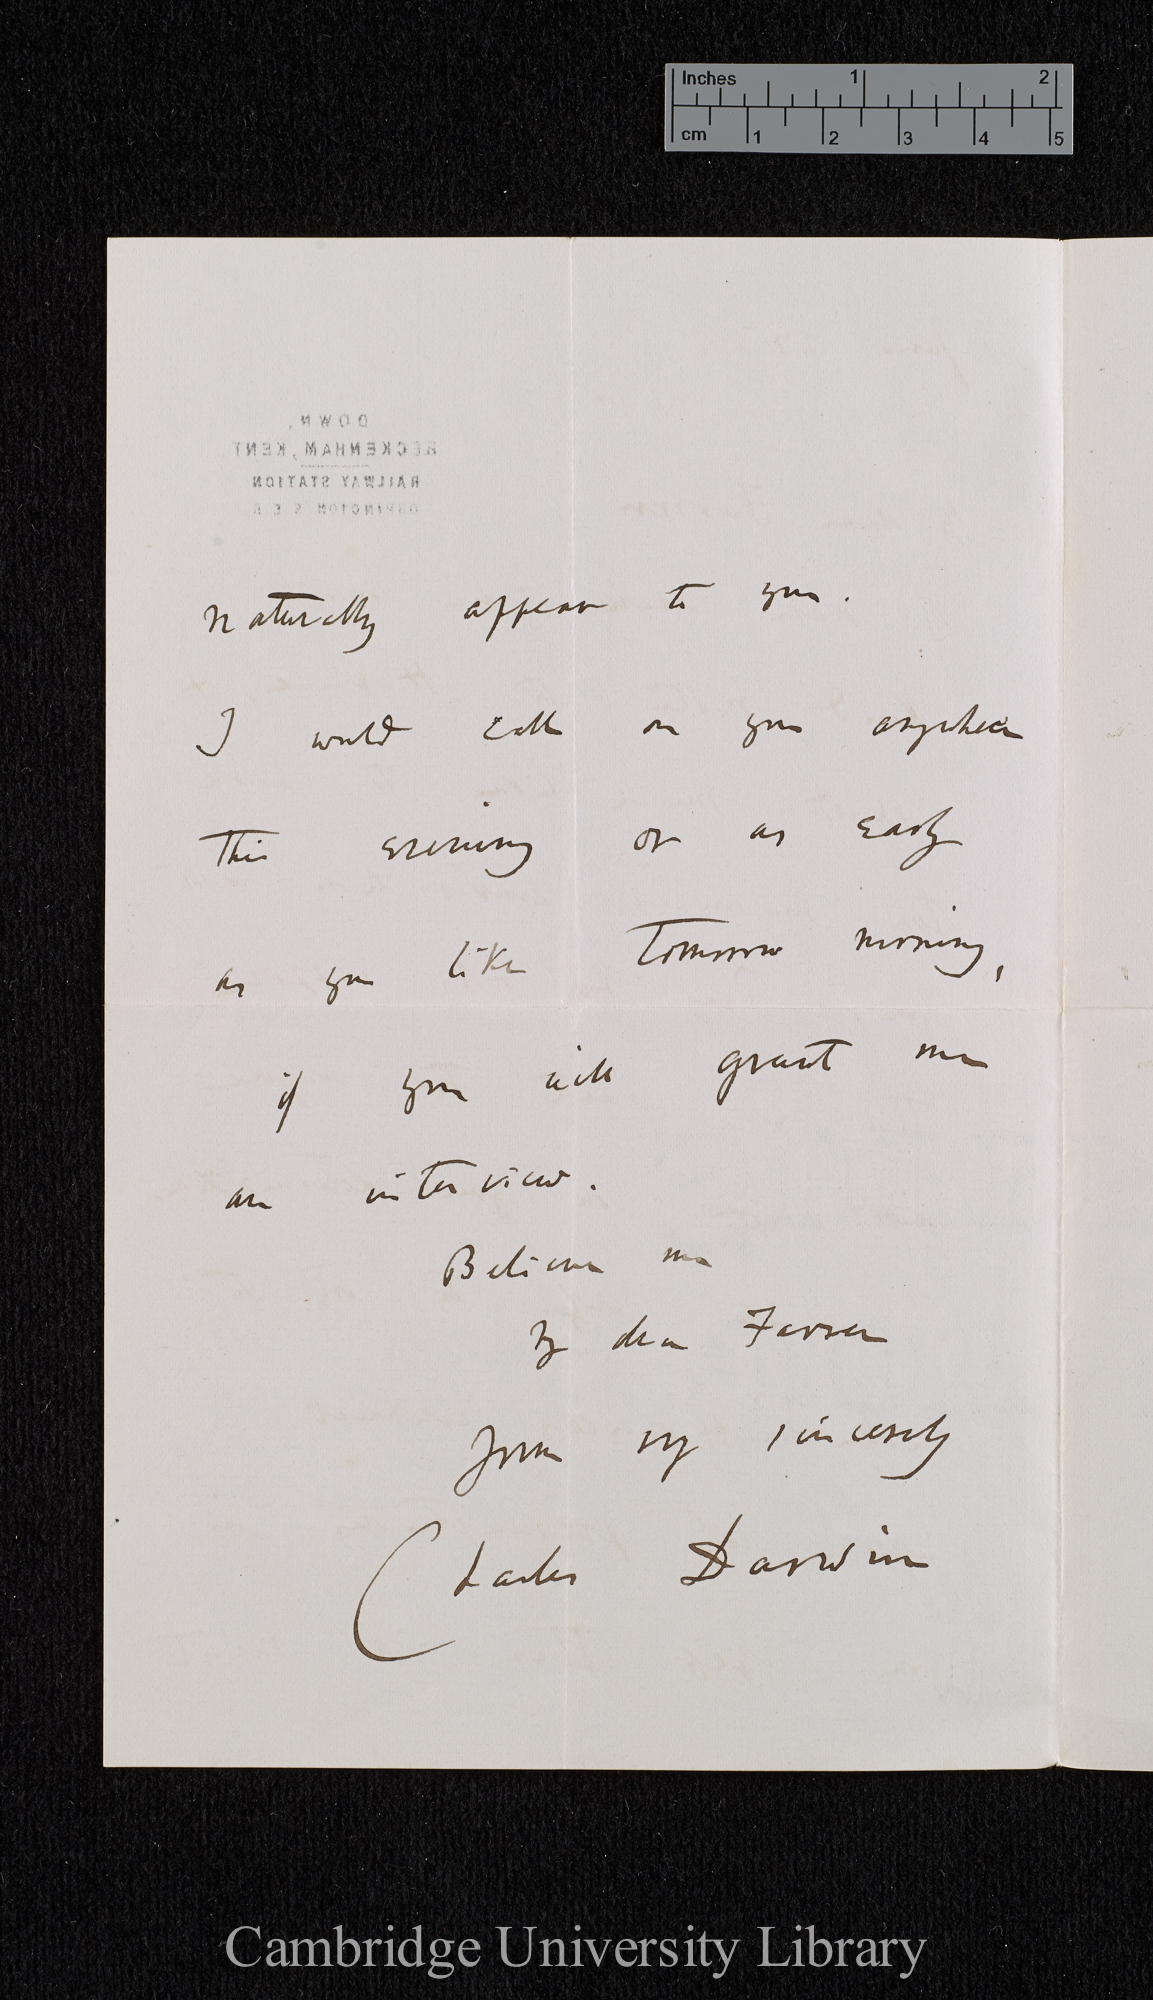 Inches 1 2
cm 1 2 3 4 5
DOWN,
BECKENHAM, KENT
RAILWAY STATION
ORPINGTON S.E.R.
naturally appear to you.
I would call on you anywhere
this evening or as early
as you like tomorrow morning,
if you will grant me
an interview.
Believe me
My dear Farrer
Yours very sincerely
Charles Darwin
Cambridge University Library